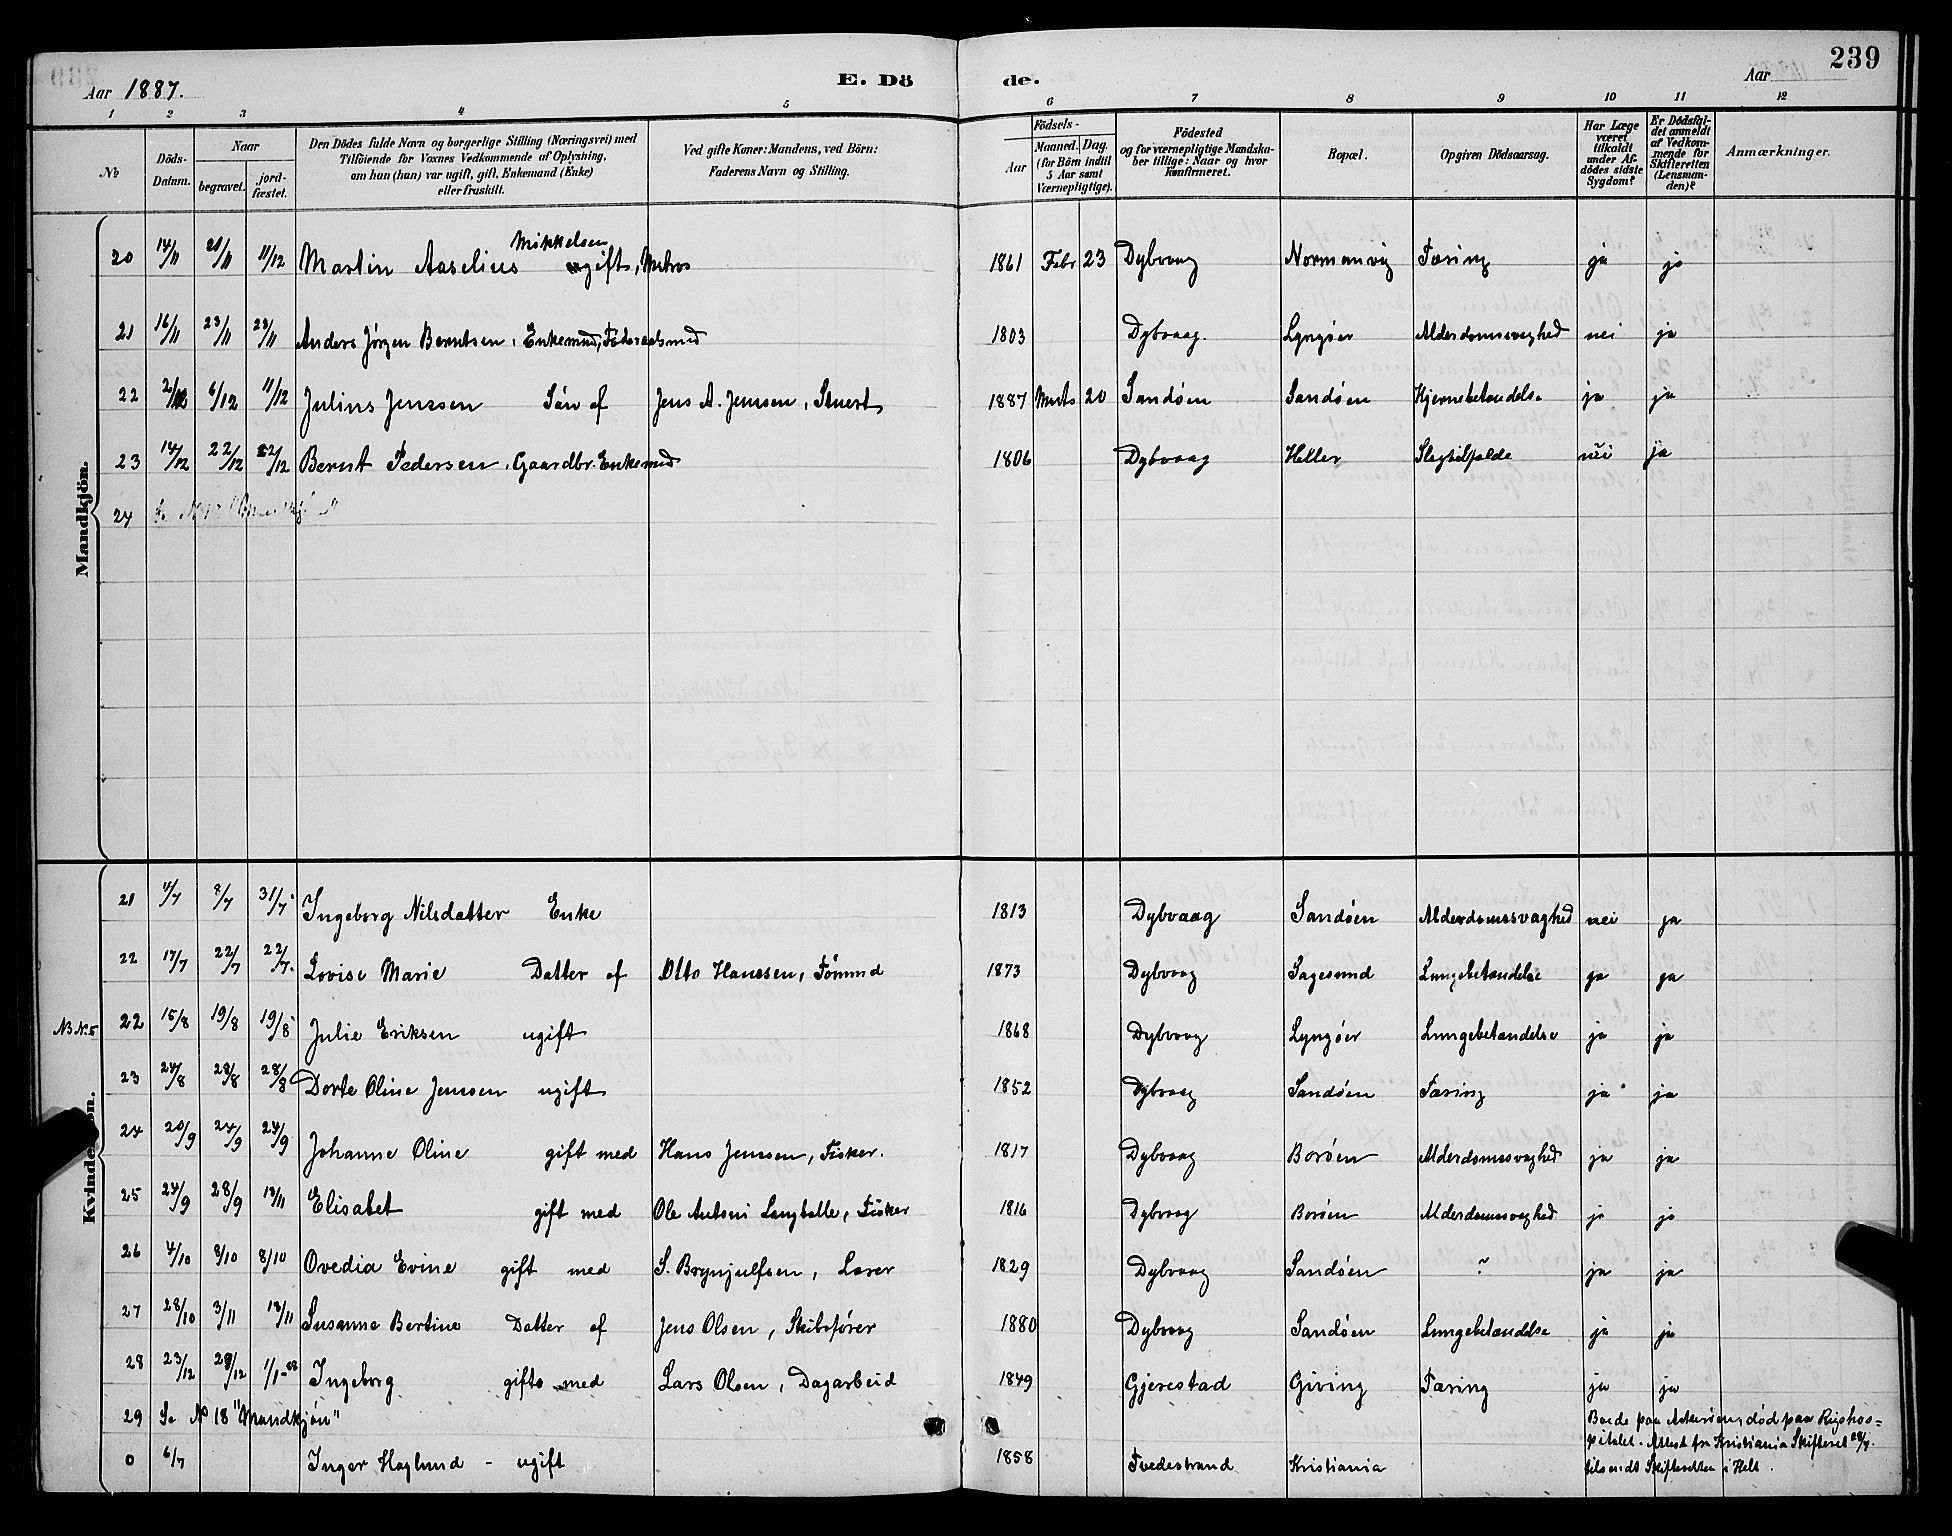 239
Aar 1887.
E. Dö
de.
Aar
1 2 3 4 5 6 7 8 9 10 11 12
No
Döds-Datum.
Naar
begravet.
jord-fæstet.
Den Dödes fulde Navn og borgerlige Stilling (Næringsvei) med
Tilföiende for Voxnes Vedkommende af Oplysning,
om han (hun) var ugift, gift, Enkemand (Enke)
eller fraskilt.
Ved gifte Koner: Mandens, ved Börn:
Faderens Navn og Stilling.
Födsels-
Aar
Maaned. Dag.
(for Börn indtil
5 Aar samt
Værnepligtige).
Födested
og for værnepligtige Mandska-
ber tillige: Naar og hvor
konfirmeret.
Bopæl.
Opgiven Dödsaarsag.
Har Læge
været
tilkaldt
under Af-
dödes sidste
Sygdom?
Er Dödsfal-
det anmeldt
af Vedkom-
mende for
Skifteretten
(Lensman-
den)?
Anmærkninger.
Mandkjön.
Mikkelsen
20 14/11 21/11 11/12 Martin Aaselius ugift, Matros 1861 Febr 23 Dybvaag Normanvig Tæring ja ja
21 16/11 23/11 23/11 Anders Jörgen Berntsen, Enkemand, Föderaadsmand 1803 Dybvaag. Lyngöer Alderdomssvaghed nei ja
22 2/12 6/12 11/12 Julius Jenssen Sön af Jens A. Jenssen, Stuert 1887 Marts 20 Sandöen Sandöen Hjernebetændelse ja ja
23 14/12 22/12 22/12 Bernt Pedersen, Gaardbr. Enkemand 1806 Dybvaag Heller Slagtilfælde nei ja
24 Se No
Kvindekjön.
21 4/7 8/7 31/7 Ingeborg Nilsdatter Enke 1813 Dybvaag Sandöen Alderdomssvaghed nei ja
22 17/7 22/7 22/7. Lovise Marie Datter af Otto Hanssen, Tömmd 1873 Dybvaag Sagesund Lungebetændelse ja ja
NB No. 5 22 15/8 19/8 19/8 Julie Eriksen ugift 1868 Dybvaag Lyngöer Lungebetændelse ja ja
23 24/8 28/8 28/8 Dorte Oline Jenssen ugift 1852 Dybvaag Sandöen Tæring ja ja
24 20/9 24/9 24/9 Johanne Oline gift med Hans Jenssen, Fisker. 1817 Dybvaag Boröen Alderdomssvaghed ja ja
25 24/9 28/9 13/11 Elisabet gift med Ole Antoni Langballe, Fisker 1816 Dybvaag Boröen Alderdomssvaghed ja ja
26 4/10 8/10 8/10 Ovedia Evine gift med S. Brynjulfsen, Lærer 1829 Dybvaag Sandöen ? ja ja
27 28/10 3/11 13/11 Susanne Bertine Datter af Jens Olsen, Skibsförer 1880 Dybvaag Sandöen Lungebetændelse ja ja
28 23/12 29/12 1/1-88 Ingeborg gift med Lars Olsen, Dagarbeid 1849 Gjerestad Giving Tæring ja ja
29 Se No 18 "Mandkjön"
0 6/7 Inger Haglund - ugift 1858 Tvedestrand Kristiania
Boede paa Askeröen, död paa Rigshos=
pitalet. Attest fra Kristiania Skifteret 28/7.
tilsendt Skifteretten i Holt.